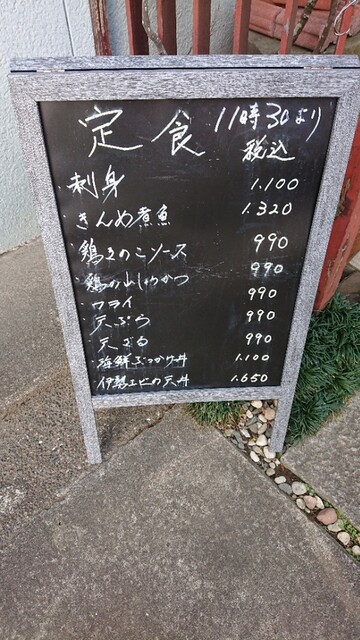 定食 11時30より
税込
刺身 1.100
・きんめ煮魚 1.320
・鶏きのこソース 990
・鶏の山しょうかつ 990
・フライ 990
・天ぷら 990
・天ざる 990
・海鮮ぶっかけ丼 1.100
・伊勢エビの天丼 1.650